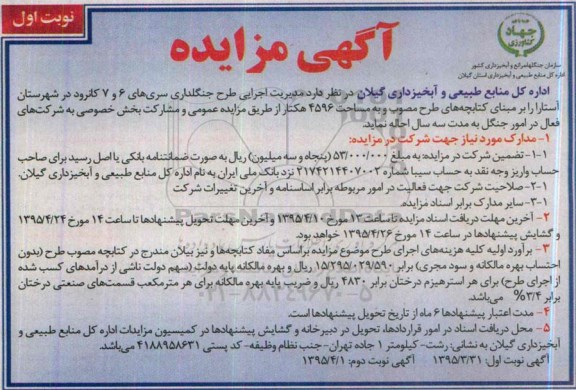 نوبت اول
آگهی مزایده
جهاد کشاورزی
سازمان جنگلها،مراتع و آبخیزداری کشور
اداره کل منابع طبیعی و آبخیزداری استان گیلان
اداره کل منابع طبیعی و آبخیزداری گیلان در نظر دارد مدیریت اجرایی طرح جنگلداری سری‌های ۶ و ۷ کانرود در شهرستان
آستارا را بر مبنای کتابچه‌های طرح مصوب به مساحت ۴۵۹۶ هکتار از طریق مزایده عمومی و مشارکت بخش خصوصی به شرکت‌های
فعال در امور جنگل به مدت سه سال احاله نماید.
۱- مدارک مورد نیاز جهت شرکت در مزایده:
۱-۱- تضمین شرکت در مزایده: به مبلغ ۵۳/۰۰۰/۰۰۰ (پنجاه و سه میلیون) ریال به صورت ضمانتنامه بانکی یا اصل رسید برای صاحب
حساب واریز وجه نقد به حساب سیبا شماره ۲۱۷۴۲۱۴۴۰۷۰۰۲ نزد بانک ملی ایران به نام اداره کل منابع طبیعی و آبخیزداری گیلان.
۱-۲- صلاحیت شرکت جهت فعالیت در امور مربوطه برابر اساسنامه و آخرین تغییرات شرکت
۱-۳- سایر مدارک برابر اسناد مزایده.
۲- آخرین مهلت دریافت اسناد مزایده تا ساعت ۱۳ مورخ ۱۳۹۵/۴/۱۰ و آخرین مهلت تحویل پیشنهادها تا ساعت ۱۴ مورخ ۱۳۹۵/۴/۲۴
و گشایش پیشنهادها در ساعت ۱۴ مورخ ۱۳۹۵/۴/۲۶ خواهد بود.
۳- برآورد اولیه کلیه هزینه‌های اجرای طرح موضوع مزایده براساس مفاد کتابچه‌ها و نیز بیلان مندرج در کتابچه مصوب طرح (بدون
احتساب بهره مالکانه و سود مجری) برابر ۱۵/۲۹۵/۰۲۹/۵۹۰ ریال و بهره مالکانه پایه دولت (سهم دولت ناشی از درآمدهای کسب شده
از اجرای طرح) برای هر استرهیزم درختان برابر ۴۸۳۰ ریال و ضریب پایه بهره مالکانه برای هر مترمکعب قسمت‌های صنعتی درختان
برابر ۳/۴% می‌باشد.
۴- مدت اعتبار پیشنهادها ۶ ماه از تاریخ تحویل پیشنهادها است.
۵- محل دریافت اسناد در امور قراردادها، تحویل در دبیرخانه و گشایش پیشنهادها در کمیسیون مزایدات اداره کل منابع طبیعی و
آبخیزداری گیلان به نشانی: رشت- کیلومتر ۱ جاده تهران- جنب نظام وظیفه- کد پستی ۴۱۸۸۹۵۸۶۳۱ می‌باشد.
آگهی نوبت اول: ۱۳۹۵/۳/۳۱ آگهی نوبت دوم: ۱۳۹۵/۴/۱